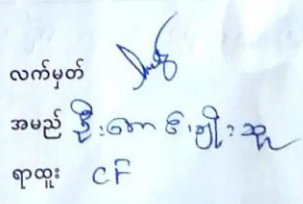 လက်မှတ်
အမည် ဦးအောင်မျိုးသူ
ရာထူး CF